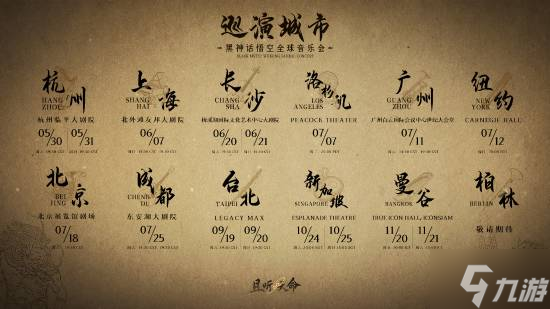 巡演城市
黑神话悟空全球音乐会
杭州
HANG ZHOU
杭州临平大剧院
05/30 05/31
上海
SHANG HAI
北外滩友邦大剧院
06/07
长沙
CHANG SHA
梅溪湖国际文化艺术中心大剧院
06/20 06/21
洛杉矶
LOS ANGELES
PEACOCK THEATER
07/07
广州
GUANG ZHOU
广州白云国际会议中心世纪大会堂
07/11
纽约
NEW YORK
CARNEGIE HALL
07/12
北京
BEI JING
北京展览馆剧场
07/18
成都
CHENG DU
东安湖大剧院
07/25
台北
TAIPEI
LEGACY MAX
09/19 09/20
新加坡
SINGAPORE
ESPLANADE THEATRE
10/24 10/25
曼谷
BANGKOK
TRUE ICON HALL, ICONSIAM
11/20 11/21
柏林
BERLIN
敬请期待
且听天命
九游